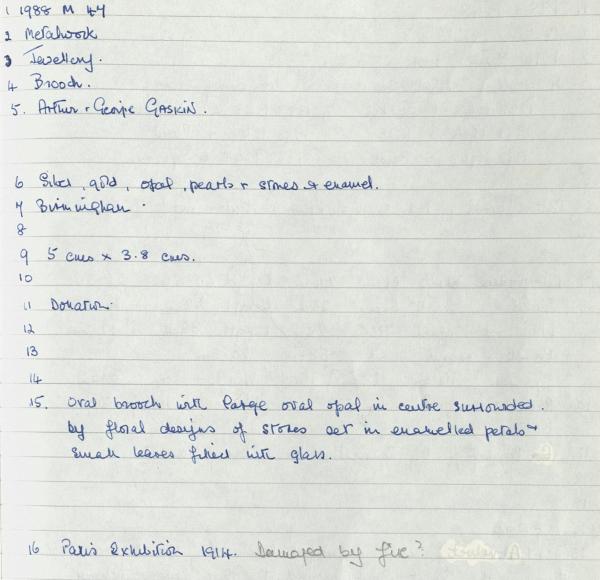 1 1988 M 47
2 Metalwork
3 Jewellery.
4 Brooch.
5. Arthur + Georgie GASKIN.
6 Silver, gold, opal, pearls + stones & enamel.
7 Birmingham.
8
9 5 cms x 3.8 cms.
10
11 Donation.
12
13
14
15. Oval brooch with large oval opal in centre surrounded.
by floral designs of stones set in enamelled petals +
small leaves filled with glass.
16 Paris Exhibition 1914. Damaged by fire?